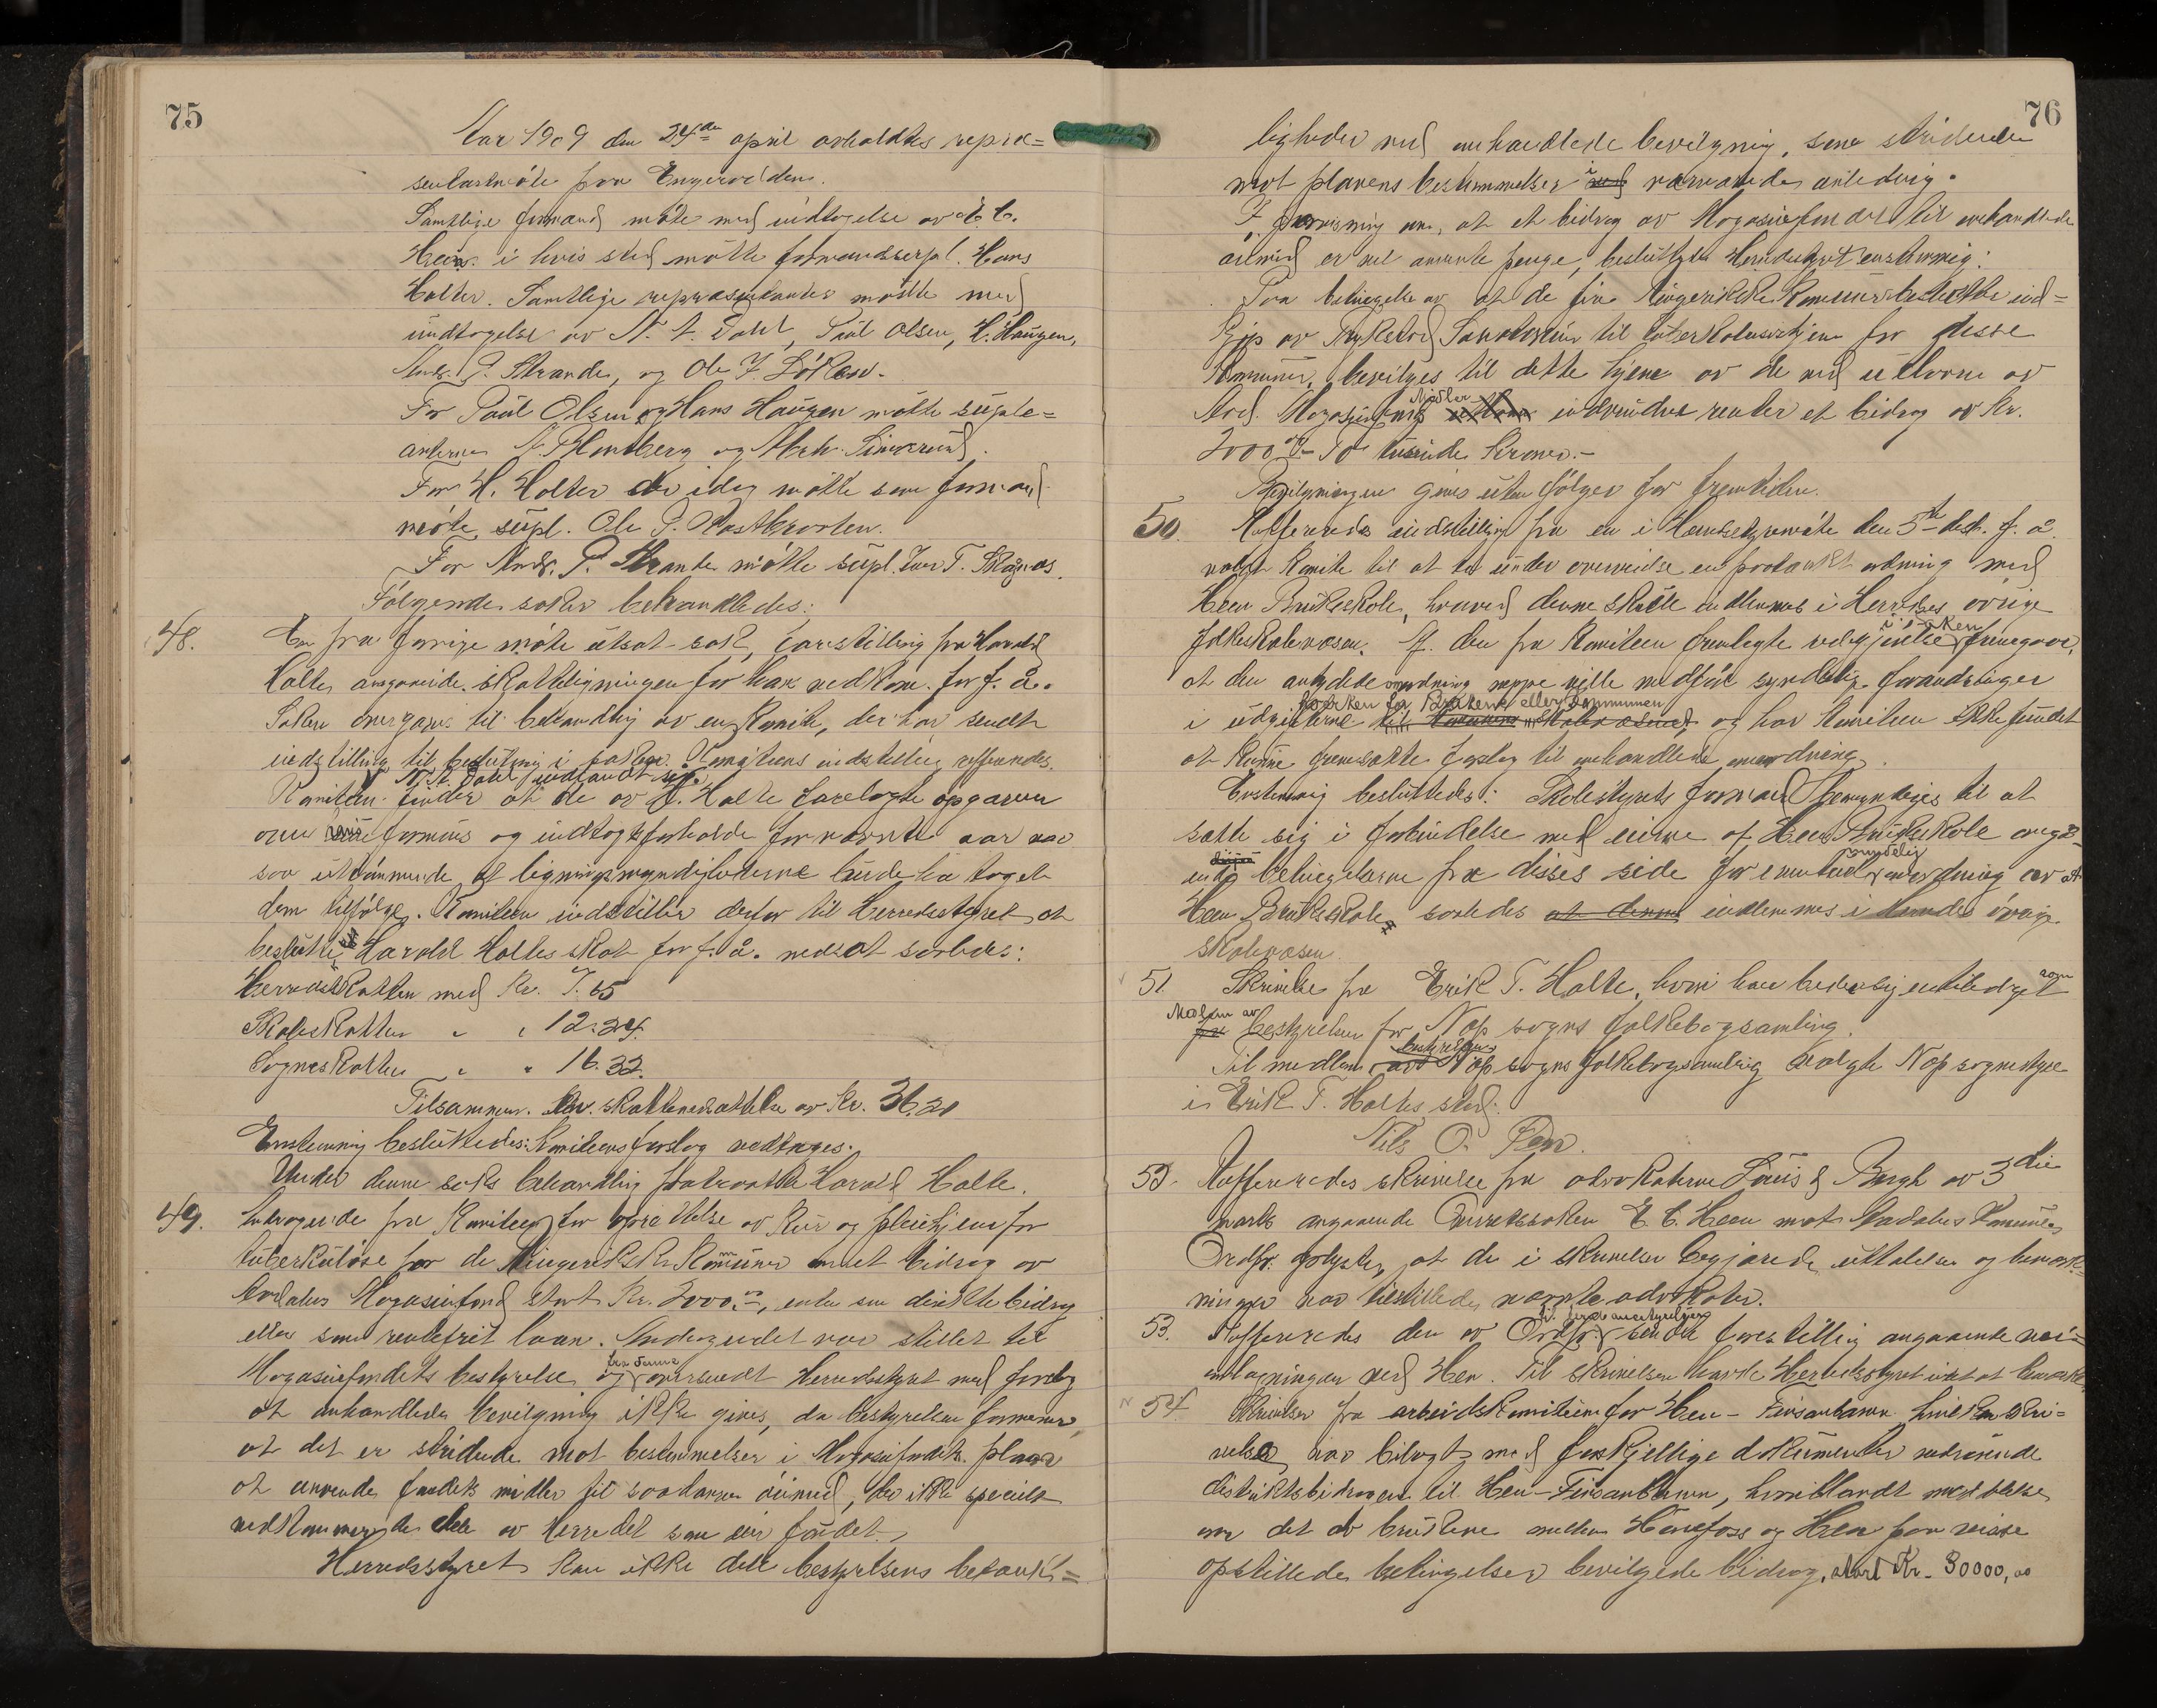 75
Aar 1909 den 24de april avholdtes repræ=
sentantmöte paa Engerodden.
Samtlige formænd mötte med undtagelse av E. C.
Heen i hvis sted mötte formandssupl. Hans
Holter. Samtlige repræsentanter mötte med
undtagelse av N. A. Dahl, Paul Olsen, H. Haugen,
Andr. P. Strande, og Ole J. Löken.
For Paul Olsen og Hans Haugen mötte suple=
anterne
For H. Holter der idag mötte som formand
mötte supl. Ole P.
For Andr. P. Strande mötte supl. Iver T.
Følgende saker behandledes:
48. En fra forrige möte utsat sak, forestilling fra Harald
Holte angaaende skatteligningen for ham vedkom. for f. å.
Saken overgaves til behandling av en Komite, der har sendt
indstilling til beslutning i saken. Komiteens indstilling refferedes.
N. A. Dahl indfandt sig.
Komiteen finder at de av H. Holte forelagte opgaver
over formues og indtægtsforholde for nævnte aar var
saa uttömmende at ligningsmyndigheterne burde ha taget
dem tilfölge. Komiteen indstiller derfor til Herredsstyret at
beslutte Harald Holtes skat for f. å. nedsat saaledes:
Herredsskatten med Kr. 7.65
Skoleskatten " " 12.24
Sogneskatten " " 16.32
Tilsammen skattenedsættelse av Kr. 36.21
Enstemmig besluttedes: Komiteens forslag vedtages.
Under denne saks behandling fratraadte Harald Holte.
49. Andragende fra Komiteen for oprettelse av Kur og pleiehjem for
tuberkulöse for de Ringerikske Kommuner om et bidrag av
Aadalens Magasinfond stort Kr. 2000.00, enten som direkte bidrag
eller som rentefrit laan. Andragendet var stillet til
Magasinfondets bestyrelse og fra denne oversendt Herredsstyret med forslag
at omhandlede bevilgning ikke gives, da bestyrelsen formener,
at det er stridende mot bestemmelser i Magasinfondets planer
at anvende fondets midler til saadanne öiemed, der ikke specielt
vedkommer de dele av Herredet som eier fondet.
Herredsstyret kan ikke dele bestyrelsens betænk=
76
ligheder ved omhandlede bevilgning, som stridende
mot planens bestemmelser i nærværende anledning.
F. anvisning om, at et bidrag av Magasinfondet til omhandlede
öiemed er vel anvendte penge, besluttedes Herredsstyret enstemmig:
Paa betingelse av at de fire Ringerikske Kommuner beslutter ind=
kjöp av Sanatorium til tuberkulosehjem for disse
Kommuner, bevilges til dette hjem av de ved utlaan av
Aad. Magasinfonds Midler indvundne renter et bidrag av Kr.
2000.00 To tusinde kroner.-
Bevilgningen gives uten fölger for fremtiden.
50. Refferedes indstilling fra en i Herredsstyremöte den 5te dec. f. å.
valgt Komite til at ta under overveielse en paatænkt ordning med
Heen Brukskole, hvorved denne skulde indlemmes i Herredets övrige
folkeskolevæsen. Af den fra Komiteen fremlagte redegjörelse i saken fremgaar,
at den antydede omordning neppe ville medföre synderlig forandringer
i udgifterne hverken for Brukene eller kommunen, og har Komiteen ikke fundet
at kunne fremsætte forslag til omhandlede omordning.
Enstemmig besluttedes: Skolestyrets formand bemyndiges til at
sætte sig i forbindelse med eierne af Heen Brukskole anga=
ende betingelserne fra disses side for eventuel omordning av at
Heen Brukskole saaledes indlemmes i Herredets övrige
skolevæsen.
51. Skrivelse fra Erik T. Holte, hvori han beder sig entlediget som
Medlem av bestyrelsen for N op sogns folkebogsamling.
Til medlem bestyrelsen av N op sogns folkebogsamling valgte N op sognestyre
i Erik T. Holtes sted:
Nils O.
52. Refferedes skrivelse fra advokaterne Louis & Bergh av 3die
marts angaaende E. C. Heen mot Aadalens Kommune.
Ordf. oplyste, at de i skrivelsen begjærede uttalelser og bemærk=
ninger var tilstillede nævnte advokater.
53. Refferedes den av Ordf. til sendte forestilling angaaende vei=
omlægningen ved Hen. Til skrivelsen havde Herredsstyret intet at bemærke.
54 Skrivelse fra arbeidskomiteen for Hen - Finsandbanen hvilken skri=
velse var bilagt med forskjellige dokumenter vedrörende
distriktsbidragene til Hen-Finsandbanen, hvoriblandt meddelelse
om det av brukene mellem Hönefoss og Hen paa visse
opstillede betingelser bevilgede bidrag, stort Kr. 30000,00